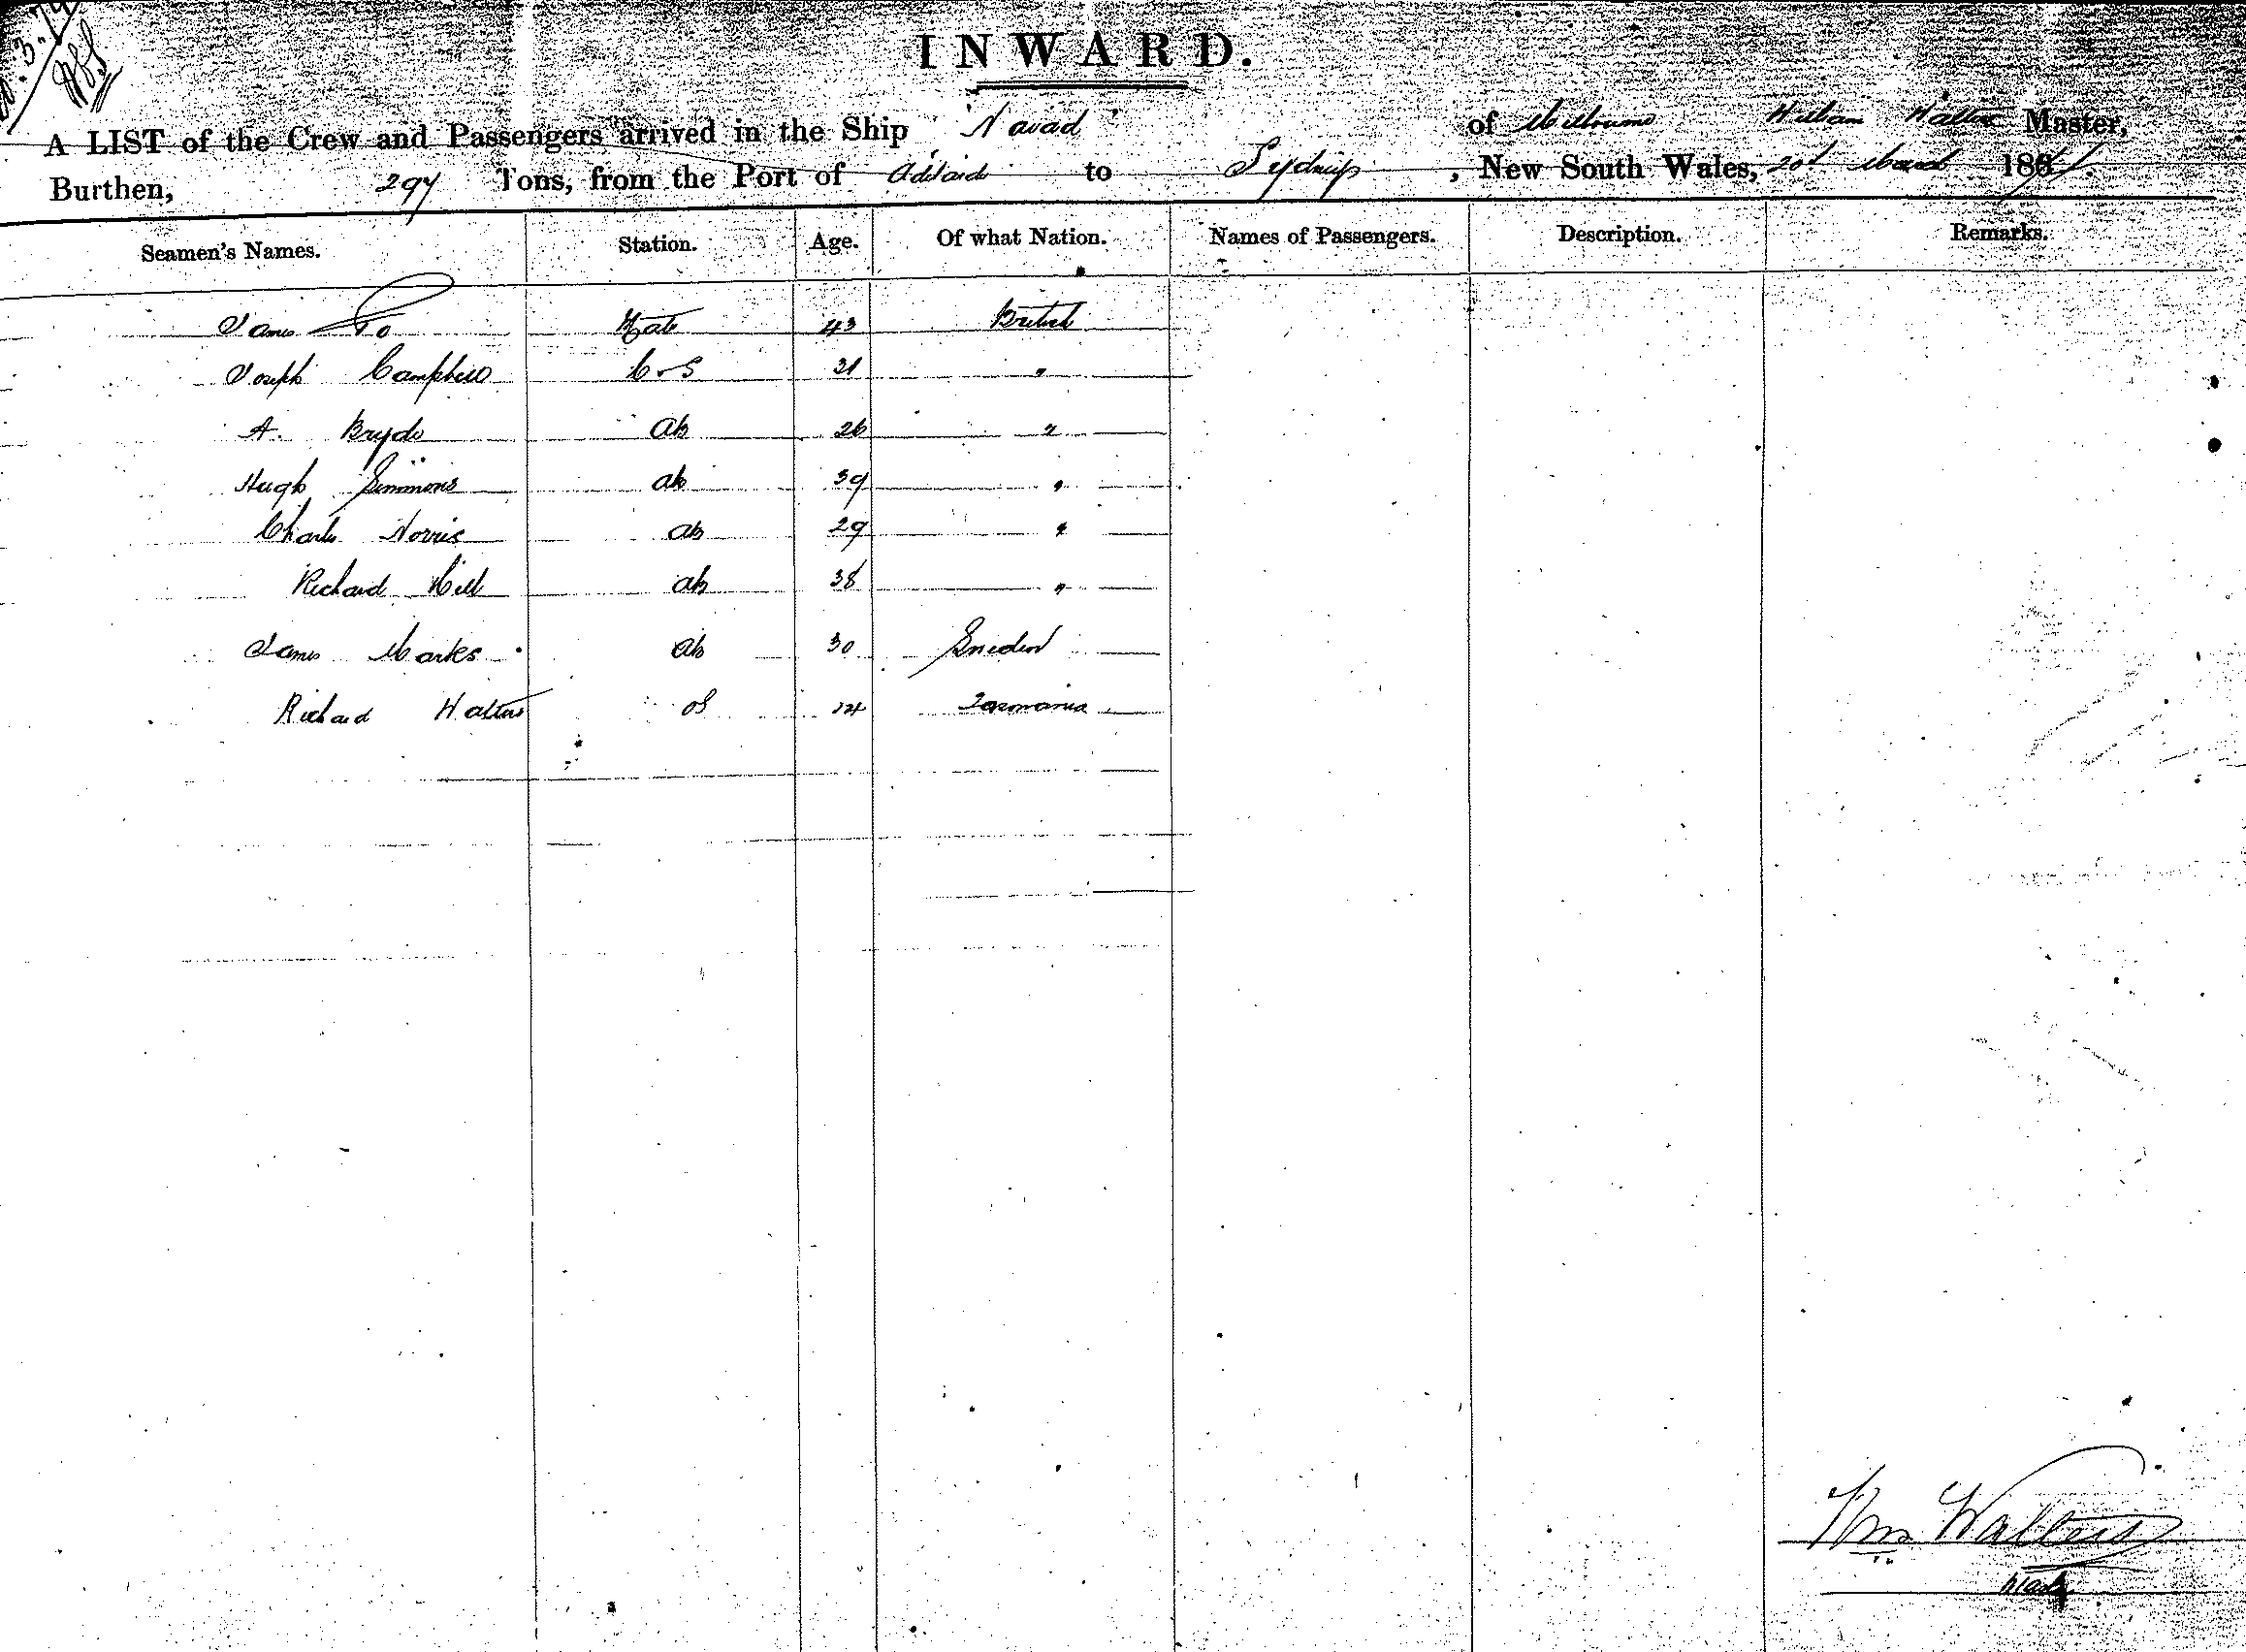 INWARD.
A LIST of the Crew and Passengers arrived in the Ship "Navad" of Melbourne William Walters Master,
Burthen, 297 Tons, from the Port of Adelaide to Sydney, New South Wales, 20th March 18
Seamen's Names. Station. Age. Of what Nation. Names of Passengers. Description. Remarks.
James Mate 43 British
Joseph Campbell C-S 31 "
A. Bryde ab 26 "
Hugh Simmons ab 39 "
Charles Norris ab 29 "
Richard Hill ab 38 "
James Marks ab 30 Sweden
Richard Walters os 14 Tasmania
Wm Walters
Master